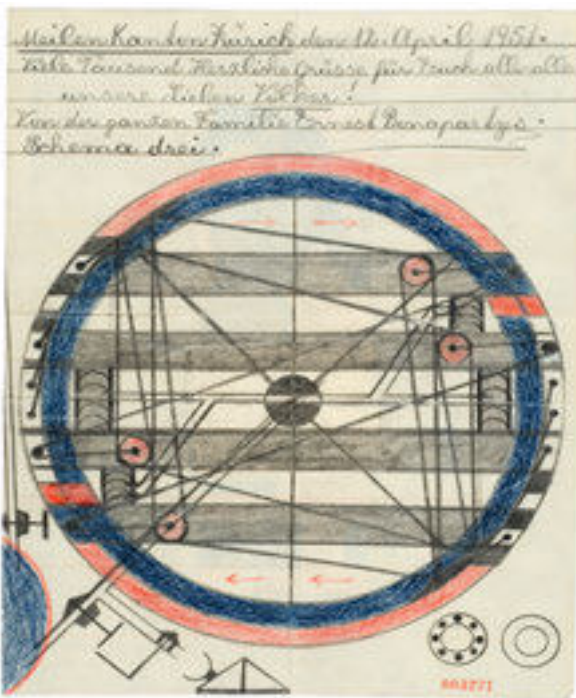 Meilen Kanton Zürich den 12. April 1951.
Viele Tausend Herzliche Grüsse für Euch alle alle
unsere lieben Völker!
Von der ganzen Familie Ernest
Schema drei.